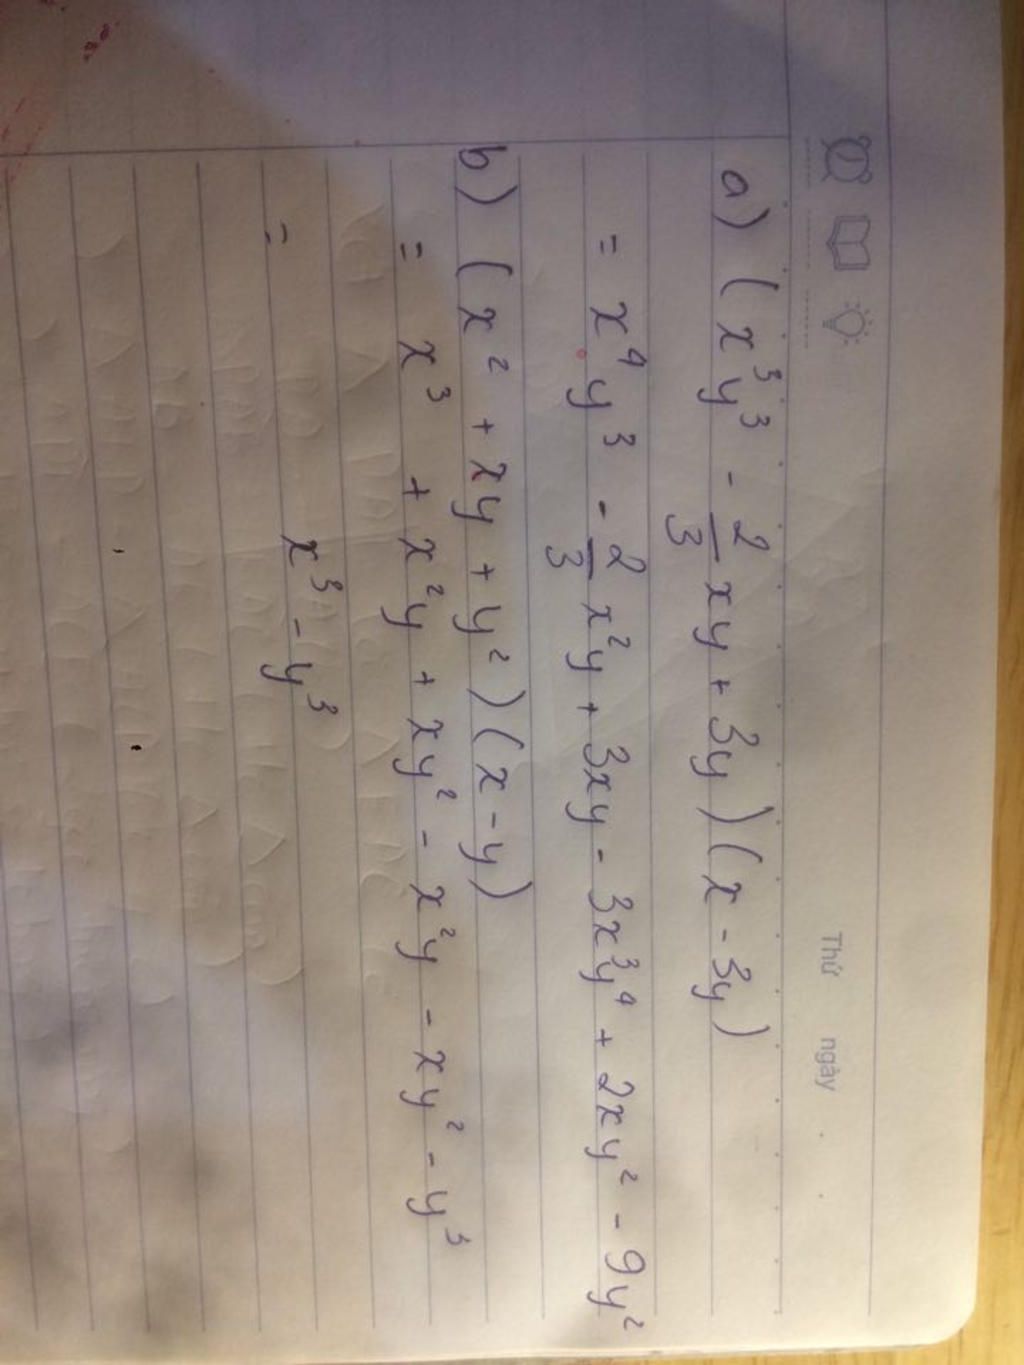 Thứ ngày
a) (x³y³ - 2/3 xy + 3y)(x - 3y)
= x⁴y³ - 2/3 x²y + 3xy - 3x³y⁴ + 2xy² - 9y²
b) (x² + xy + y²)(x - y)
= x³ + x²y + xy² - x²y - xy² - y³
= x³ - y³